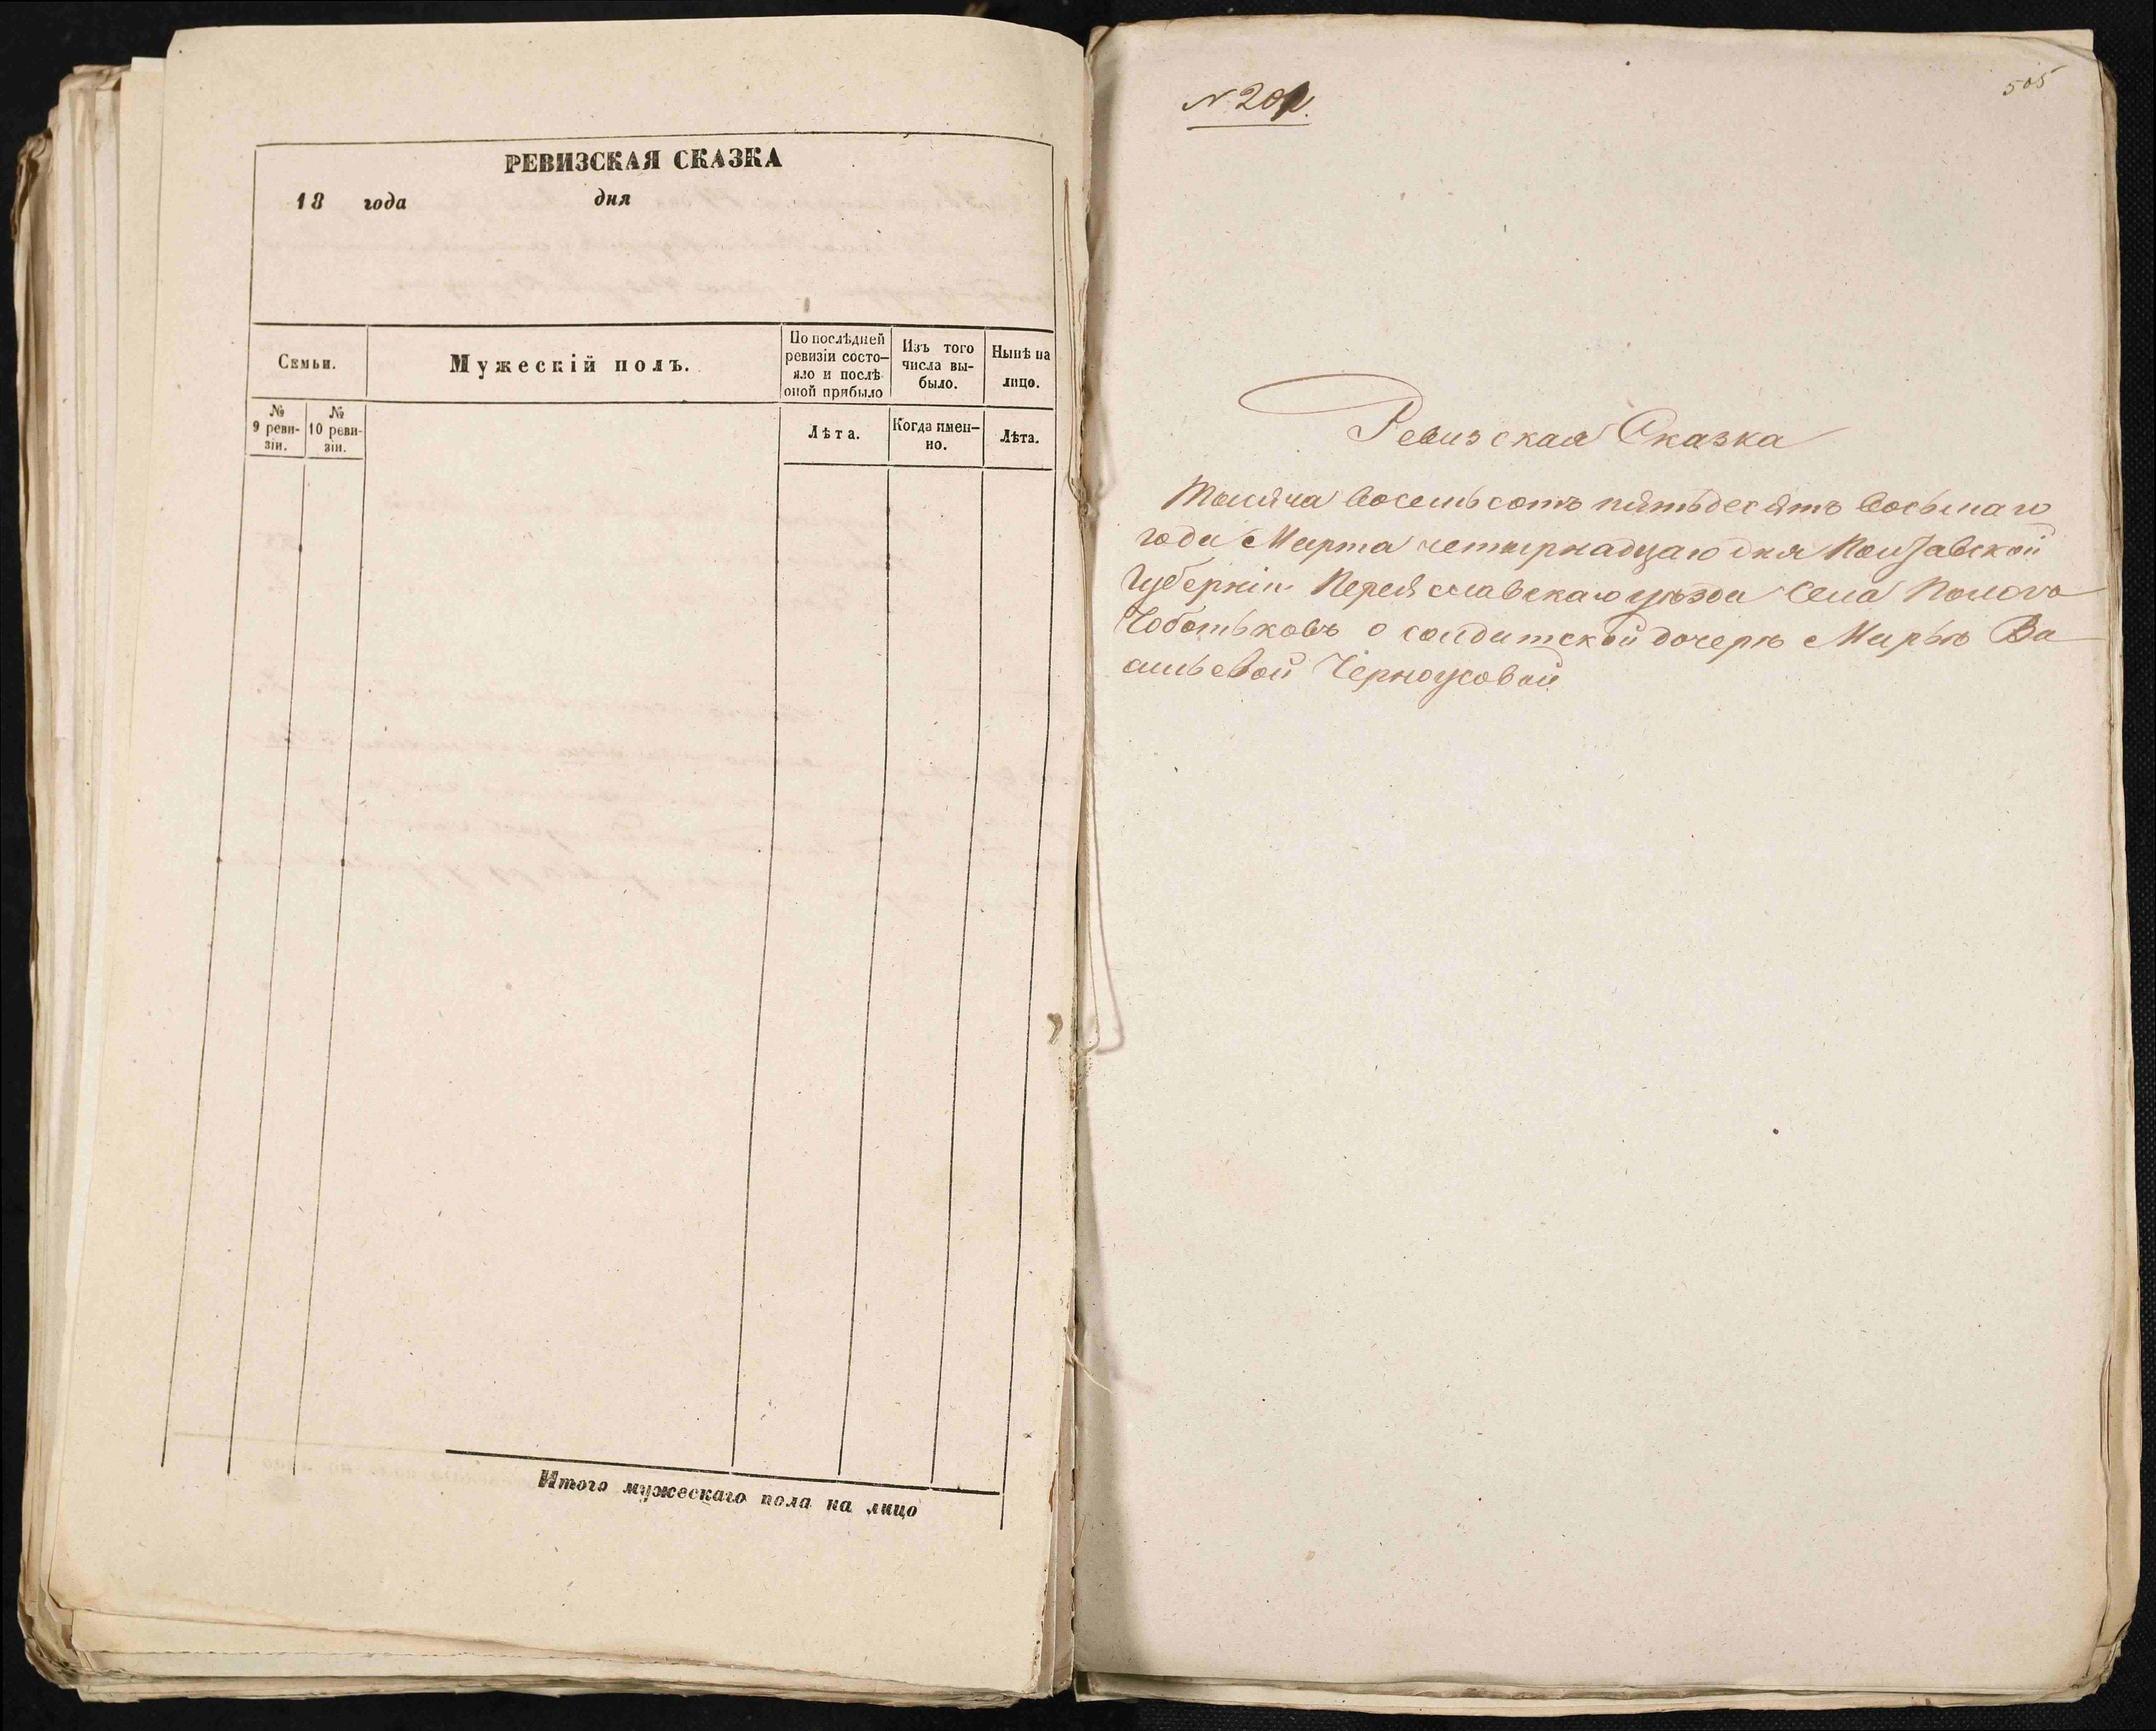 РЕВИЗСКАЯ СКАЗКА
18 года дня
Семьи.
Мужескій полъ.
По послѣдней ревизіи состо-
яло и послѣ
оной прибыло
Изъ того
числа вы-
было.
Нынѣ на
лицо.
№
9 реви-
зіи.
№
10 реви-
зіи.
Лѣта.
Когда имен-
но.
Лѣта.
Итого мужескаго пола на лицо
505
Ревизская Сказка
Тысяча восемьсотъ пятьдесятъ восьмаго
года Марта четырнадцаго дня Полтавской
Губерніи Переяславскаго уѣзда Села
о солдатской дочерѣ Марьѣ Ва
сильевой Черноусовой